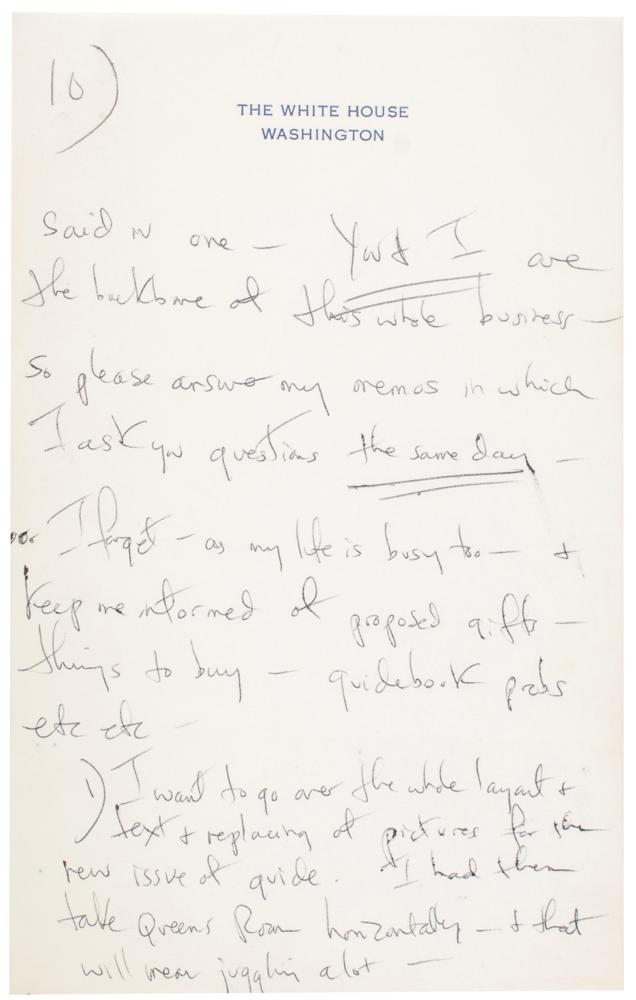 10)
THE WHITE HOUSE
WASHINGTON
Said in one — You & I are
the backbone of this whole business —
so please answer my memos in which
I ask you questions the same day —
or I forget — as my life is busy too — &
keep me informed of proposed gifts —
things to buy — guidebook probs
etc etc —
1) I want to go over the whole layout &
text & replacing of pictures for the
new issue of guide. I had them
take Queens Room horizontally — & that
will mean juggling a lot —